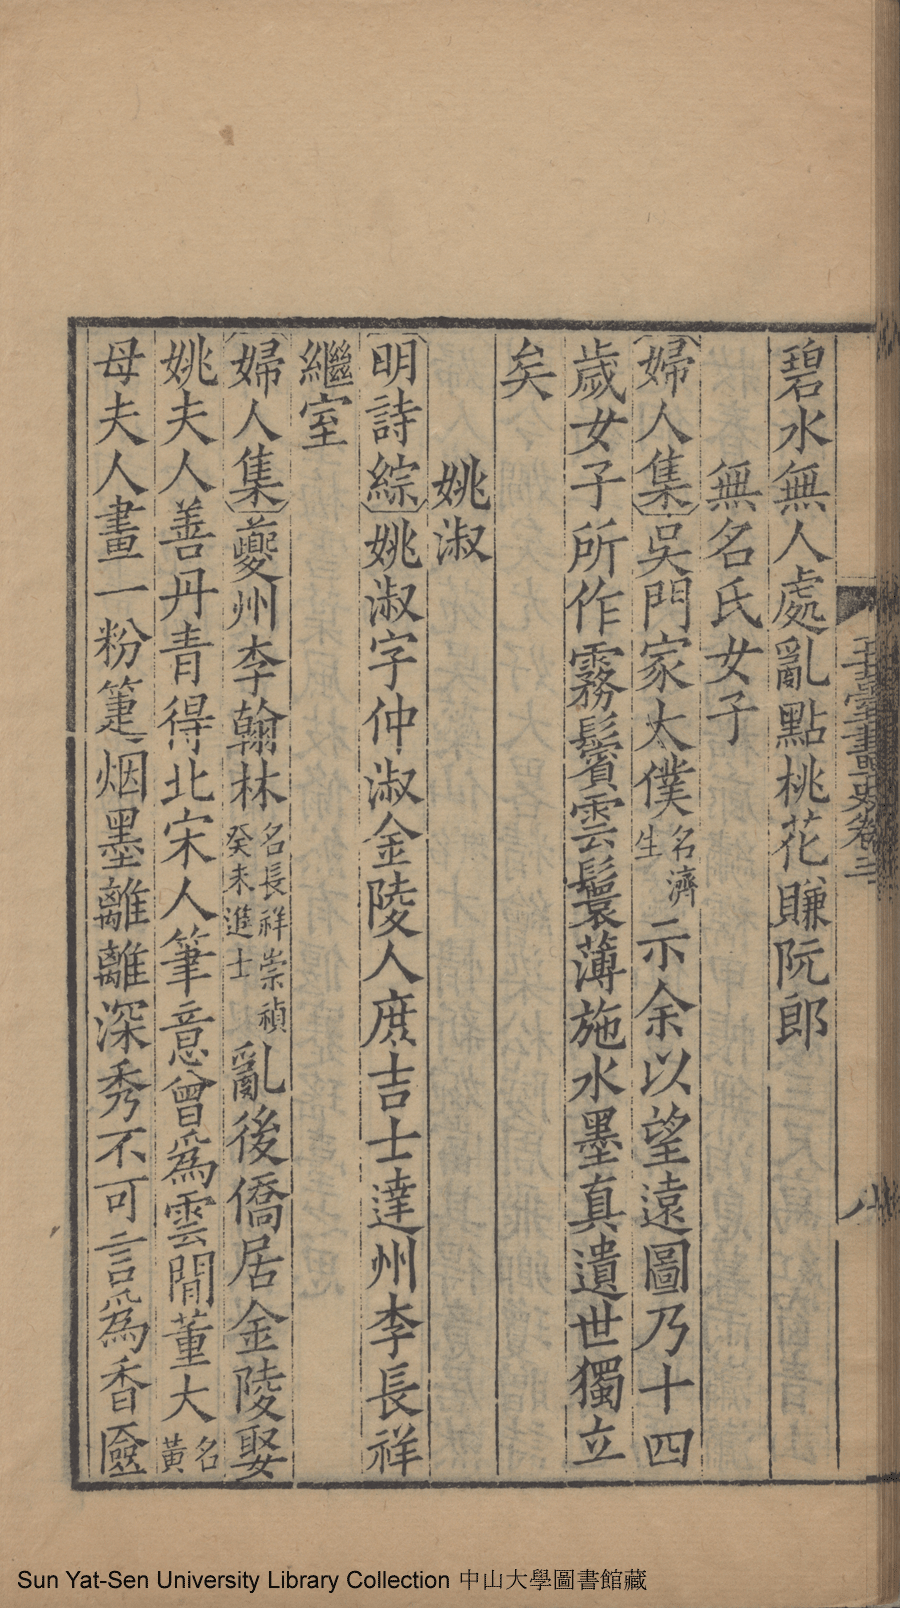 碧水無人處亂點桃花賺阮郎
無名氏女子
婦人集吳門家太僕名濟生示余以望遠圖乃十四
歲女子所作霧鬢雲鬟薄施水墨真遺世獨立
矣
姚淑
明詩綜姚淑字仲淑金陵人庶吉士達州李長祥
繼室
婦人集夔州李翰林名長祥崇禎癸未進士亂後僑居金陵娶
姚夫人善丹青得北宋人筆意曾為雲間董大名黃
母夫人畫一粉箑烟墨離離深秀不可言為香奩
玉臺畫史卷三
Sun Yat-Sen University Library Collection 中山大學圖書館藏